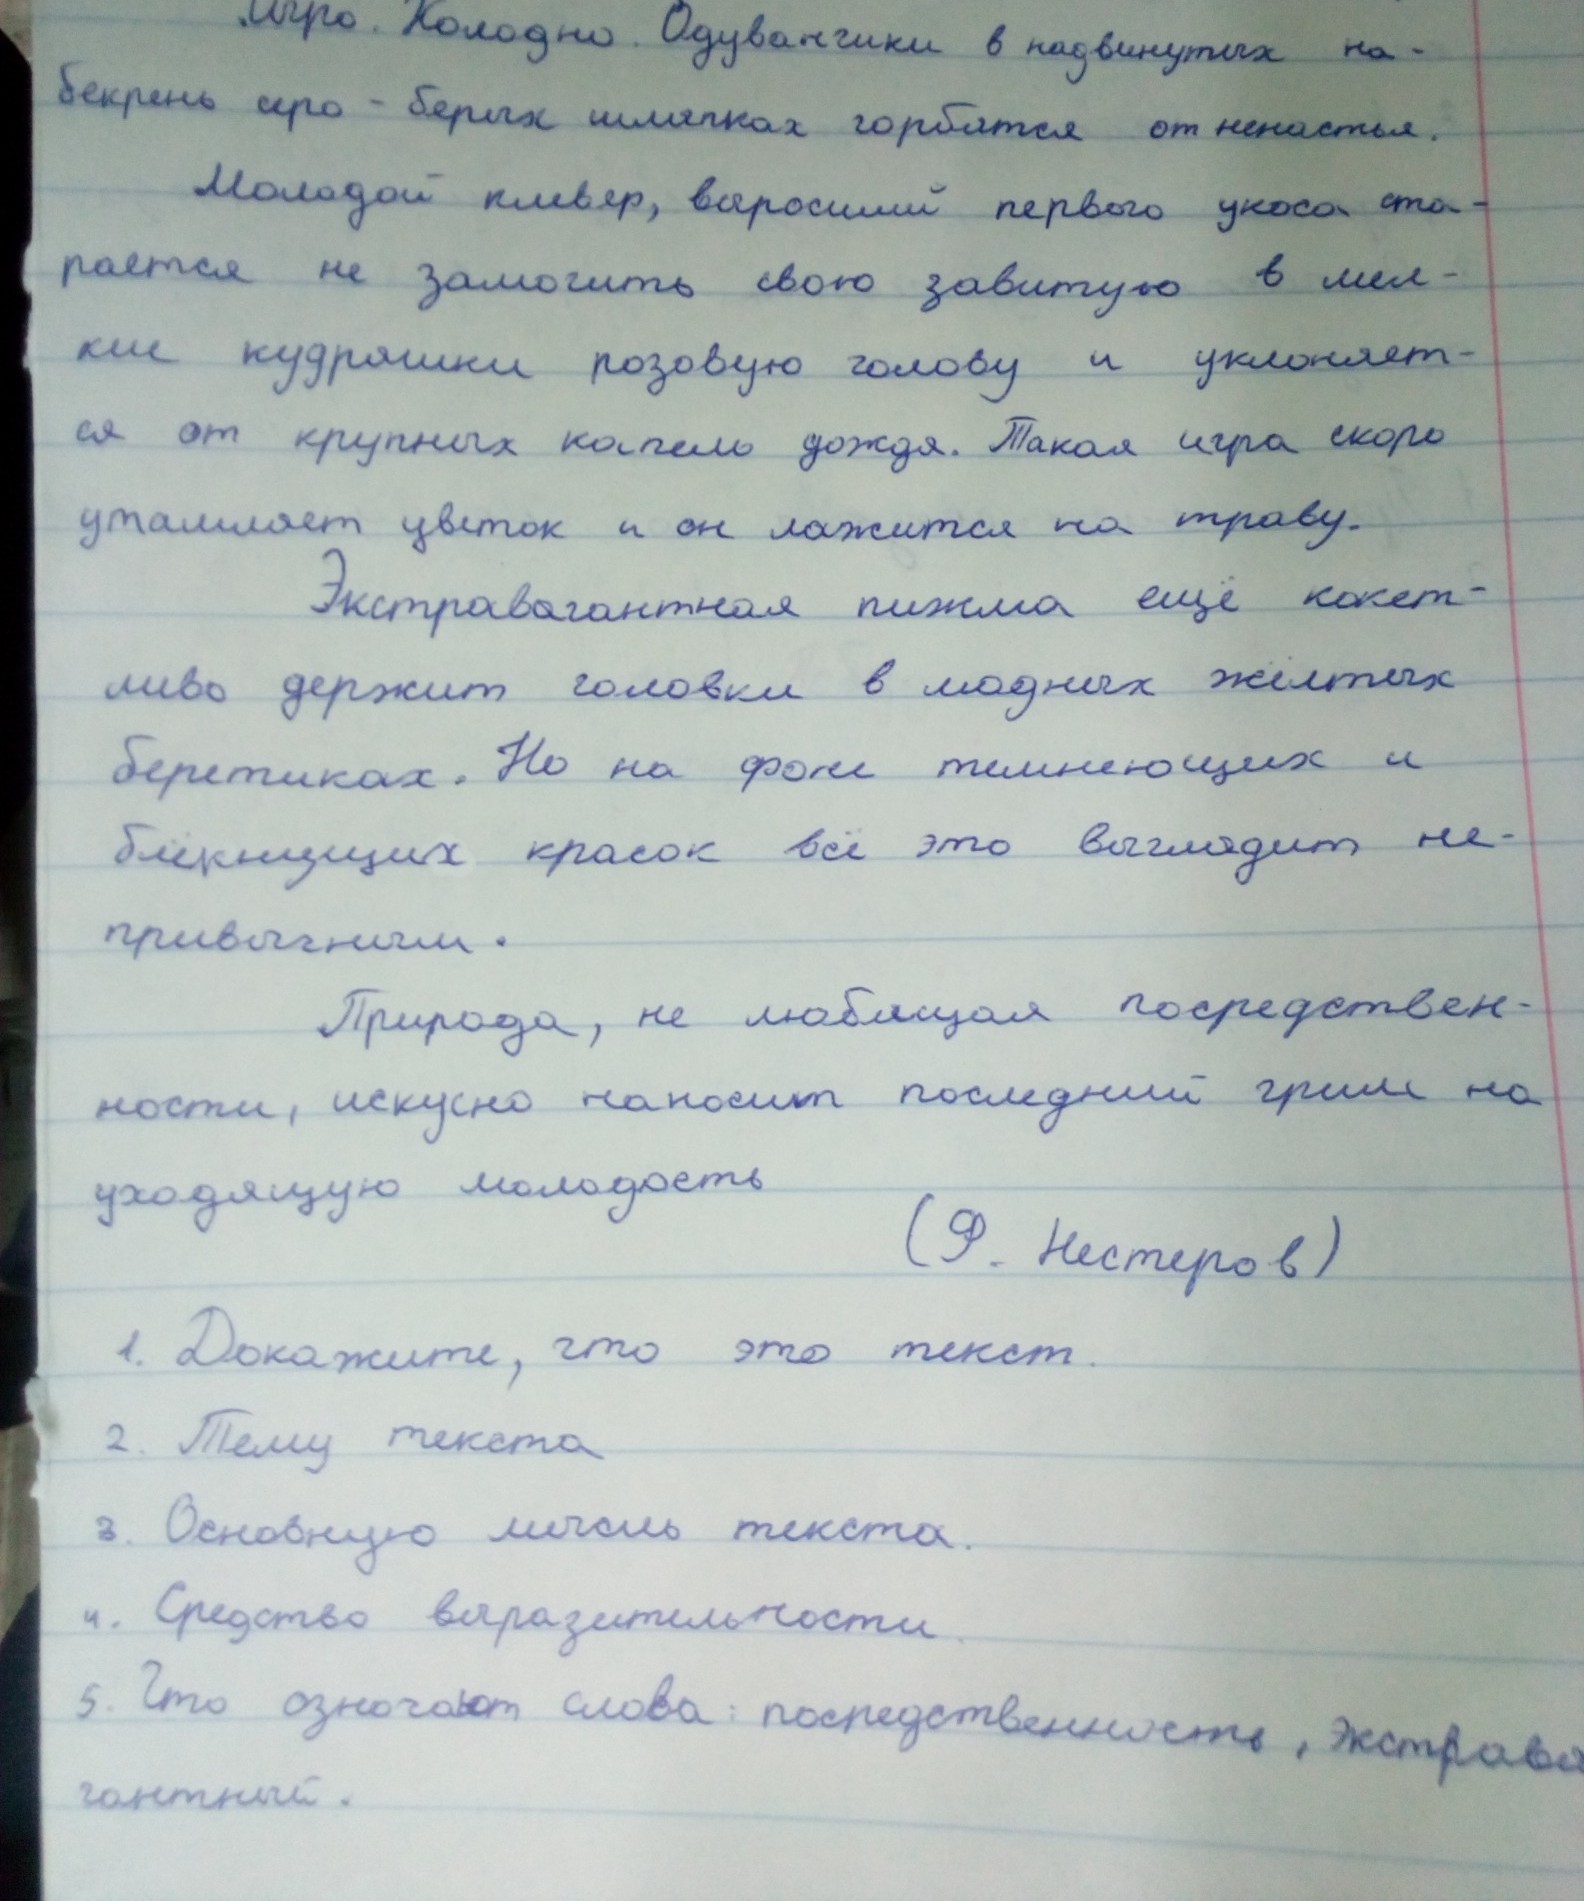 Холодно. Одуванчики в надвинутых на-
бекрень серо-белых шляпках горбятся от ненастья.
Молодой клевер, выросший первого укоса ста-
рается не замочить свою завитую в мел-
кие кудряшки розовую голову и уклоняет-
ся от крупных капель дождя. Такая игра скоро
утамляет цветок и он лажится на траву.
Экстравагантная пижма ещё кокет-
ливо держит головки в модных жёлтых
беретиках. Но на фоне темнеющих и
блёкнущих красок всё это выглядит не-
привычным.
Природа, не любящая посредствен-
ности, искусно наносит последний грим на
уходящую молодость
(Ф. Нестеров)
1. Докажите, что это текст.
2. Тему текста
3. Основную мысль текста.
4. Средство выразительности.
5. Что означают слова: посредственность, экстрава
гантный.